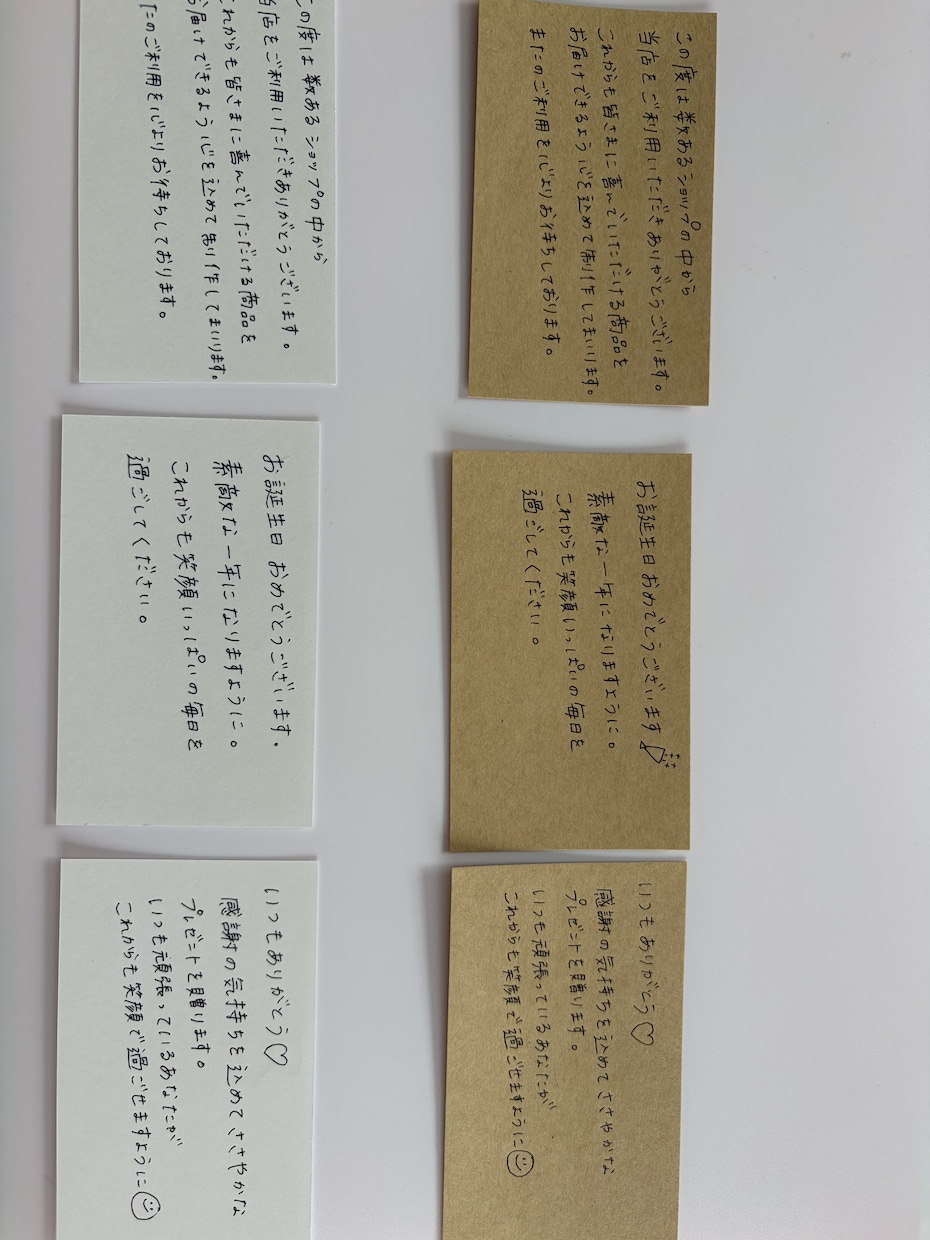 この度は数あるショップの中から
当店をご利用いただきありがとうございます。
これからも皆さまに喜んでいただける商品を
お届けできるよう心を込めて制作してまいります。
またのご利用を心よりお待ちしております。
お誕生日おめでとうございます
素敵な一年になりますように。
これからも笑顔いっぱいの毎日を
過ごしてください。
いつもありがとう♡
感謝の気持ちを込めてささやかな
プレゼントを贈ります。
いつも頑張っているあなたが
これからも笑顔で過ごせますように☺
の度は数あるショップの中から
店をご利用いただきありがとうございます。
れからも皆さまに喜んでいただける商品を
届けできるよう心を込めて制作してまいります。
たのご利用を心よりお待ちしております。
お誕生日おめでとうございます。
素敵な一年になりますように。
これからも笑顔いっぱいの毎日を
過ごしてください。
いつもありがとう♡
感謝の気持ちを込めてささやかな
プレゼントを贈ります。
いつも頑張っているあなたが
これからも笑顔で過ごせますように☺